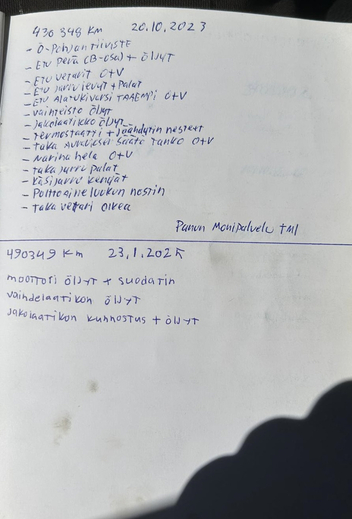 430 348 km 20.10.2023
- ö-Pohjan tiiviste
- Etu perä (B-osa) + öljyt
- Etu vetarit O+V
- Etu Jarru levyt + Palat
- Etu Alatukivarsi O+V
- Vaihteisto öljyt
- Jakolaatikko öljyt
- Termostaatti + Jäähdytin nesteet
- taka Säätö Tanko O+V
- Narina hela O+V
- taka Jarru Palat
- Käsijarru kengät
- Polttoaine luukun nostin
- taka vetari oikea
Panun Monipalvelu tmi
490349 km 23.1.2025
moottori öljyt + suodatin
vaihdelaatikon öljyt
Jakolaatikon kunnostus + öljyt